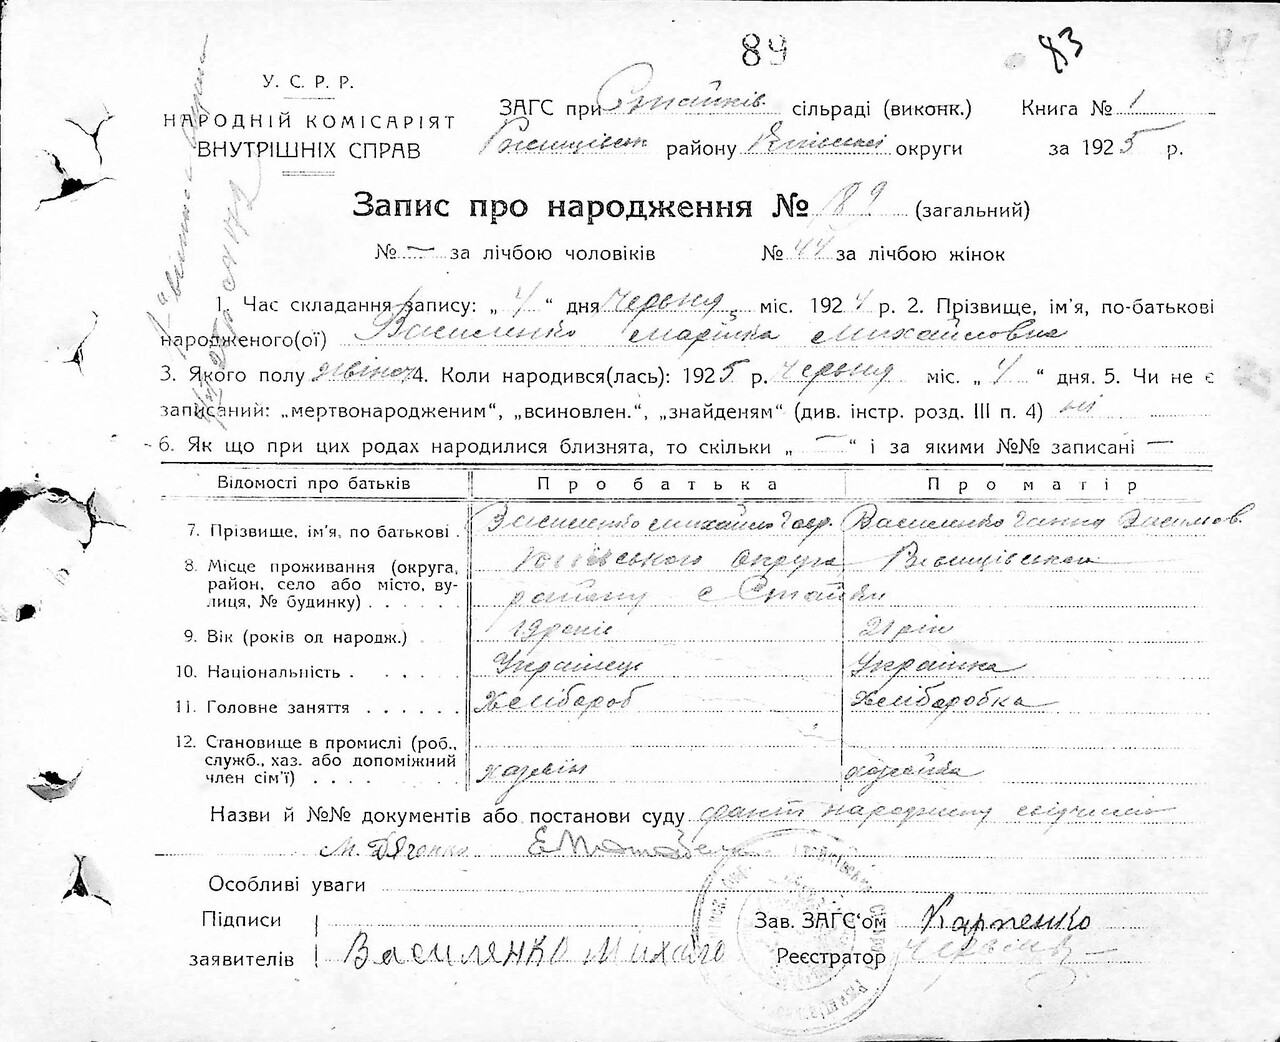 89
83
87
У. С. Р. Р.
НАРОДНІЙ КОМІСАРІЯТ
ВНУТРІШНІХ СПРАВ
ЗАГС при Стайків. сільраді (виконк.) Книга № 1
району округи за 1925 р.
Запис про народження № 189 (загальний)
№ — за лічбою чоловіків № 44 за лічбою жінок
1. Час складання запису: „ 4 “ дня Червня міс. 1924 р. 2. Прізвище, ім'я, по-батькові
народженого(ої) Василенко Марійка Михайловна
3. Якого полу жіноч 4. Коли народився(лась): 1925 р. Червня міс. „ 4 “ дня. 5. Чи не є
записаний: „мертвонародженим“, „всиновлен.“, „знайденям“ (див. інстр. розд. III п. 4) ні
6. Як що при цих родах народилися близнята, то скільки „ — “ і за якими №№ записані —
Відомості про батьків Про батька Про матір
7. Прізвище, ім'я, по батькові . Василенко Михайло Василенко Ганна
8. Місце проживання (округа, Київського округа
район, село або місто, ву-
лиця, № будинку) . . . . . . району с Стайки
9. Вік (років од народж.) 19 років 21 рік
10. Національність . . . . . Українець Українка
11. Головне заняття . . . . . . Хлібороб Хліборобка
12. Становище в промислі (роб.,
служб., хаз. або допоміжний
член сім'ї) . . . . хазяін хазяйка
Назви й №№ документів або постанови суду факт народженя
М. Дяченко
Особливі уваги
Підписи Зав. ЗАГС'ом Карпенко
заявителів Василенко Михало Реєстратор